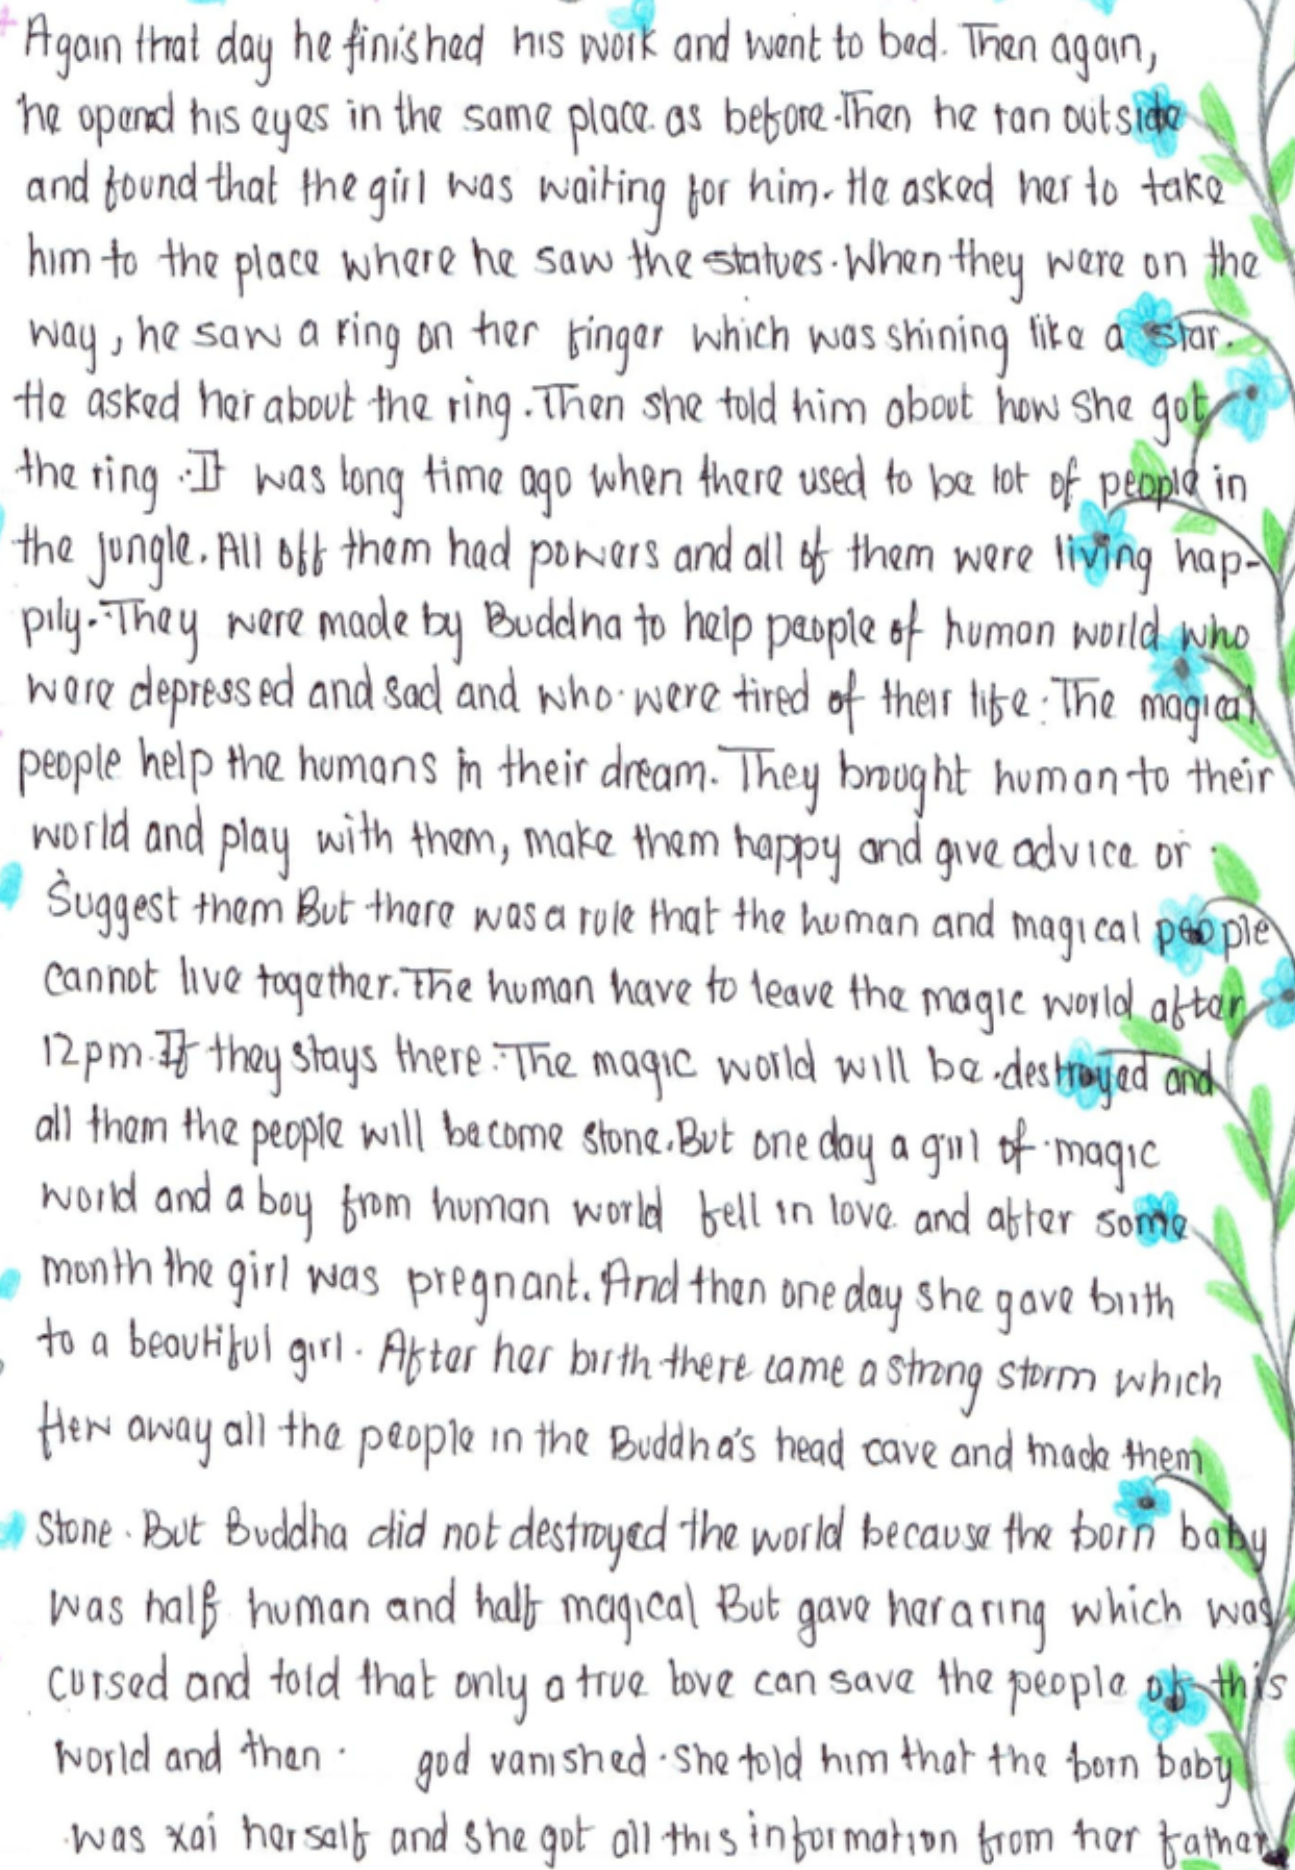 Again that day he finished his work and went to bed. Then again,
he opend his eyes in the same place as before. Then he ran outside
and found that the girl was waiting for him. He asked her to take
him to the place where he saw the statues. When they were on the
way, he saw a ring on her finger which was shining like a star.
He asked her about the ring. Then she told him about how she got
the ring. It was long time ago when there used to be lot of people in
the jungle. All off them had powers and all of them were living hap-
pily. They were made by Buddha to help people of human world who
were depressed and sad and who were tired of their life. The magical
people help the humans in their dream. They brought human to their
world and play with them, make them happy and give advice or
Suggest them But there was a rule that the human and magical people
cannot live together. The human have to leave the magic world after
12pm. If they stays there. The magic world will be destroyed and
all them the people will become stone. But one day a girl of magic
world and a boy from human world fell in love and after some
month the girl was pregnant. And then one day she gave birth
to a beautiful girl. After her birth there came a strong storm which
flew away all the people in the Buddha's head cave and made them
Stone. But Buddha did not destroyed the world because the born baby
was half human and half magical But gave her a ring which was
cursed and told that only a true love can save the people of this
world and then. god vanished. She told him that the born baby
was xai herself and she got all this information from her father